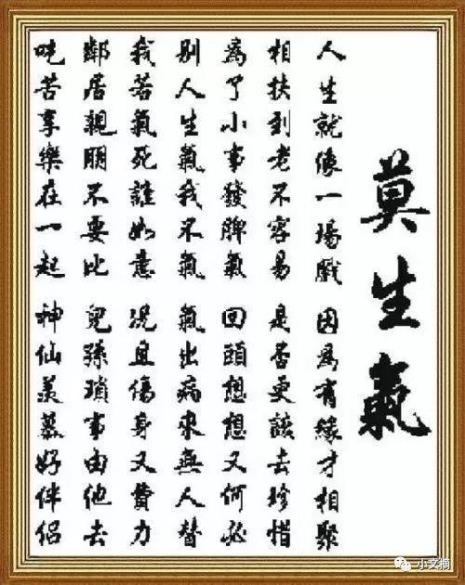 莫生氣
人生就像一場戲 因為有緣才相聚
相扶到老不容易 是否更該去珍惜
為了小事發脾氣 回頭想想又何必
別人生氣我不氣 氣出病來無人替
我若氣死誰如意 況且傷身又費力
鄰居親朋不要比 兒孫瑣事由他去
吃苦享樂在一起 神仙羨慕好伴侶
小文摘